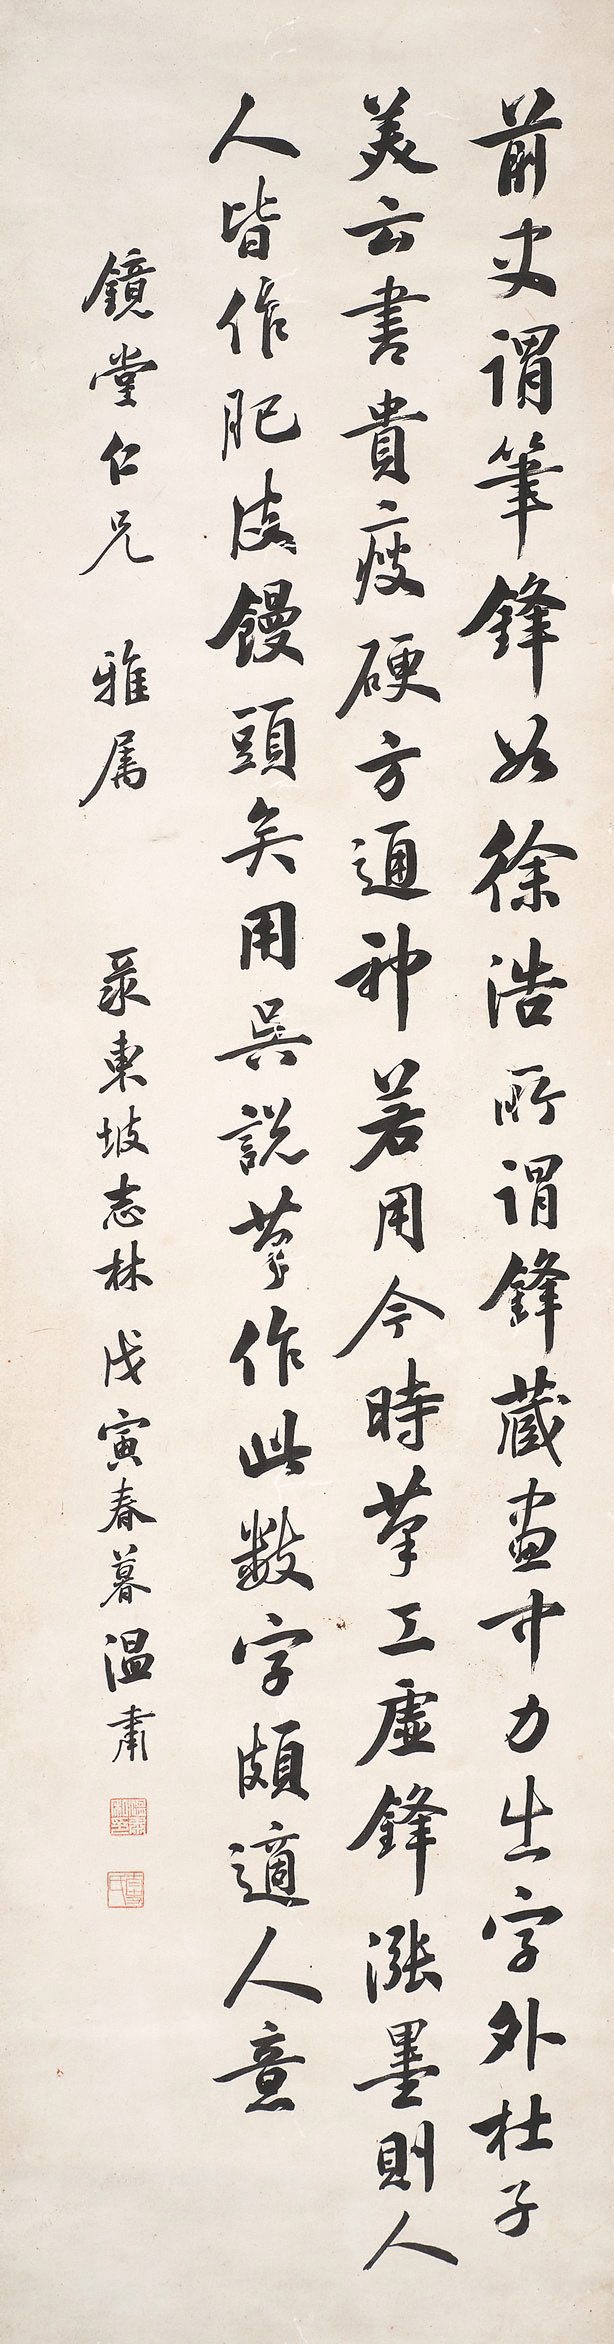 前史謂筆鋒如徐浩所謂鋒藏畫中力出字外杜子
美云書貴瘦硬方通神若用今時筆工虛鋒漲墨則人
人皆作肥皮饅頭矣用吳說筆作此數字頗適人意
鏡堂仁兄 雅屬 录東坡志林 戊寅春暮溫肅